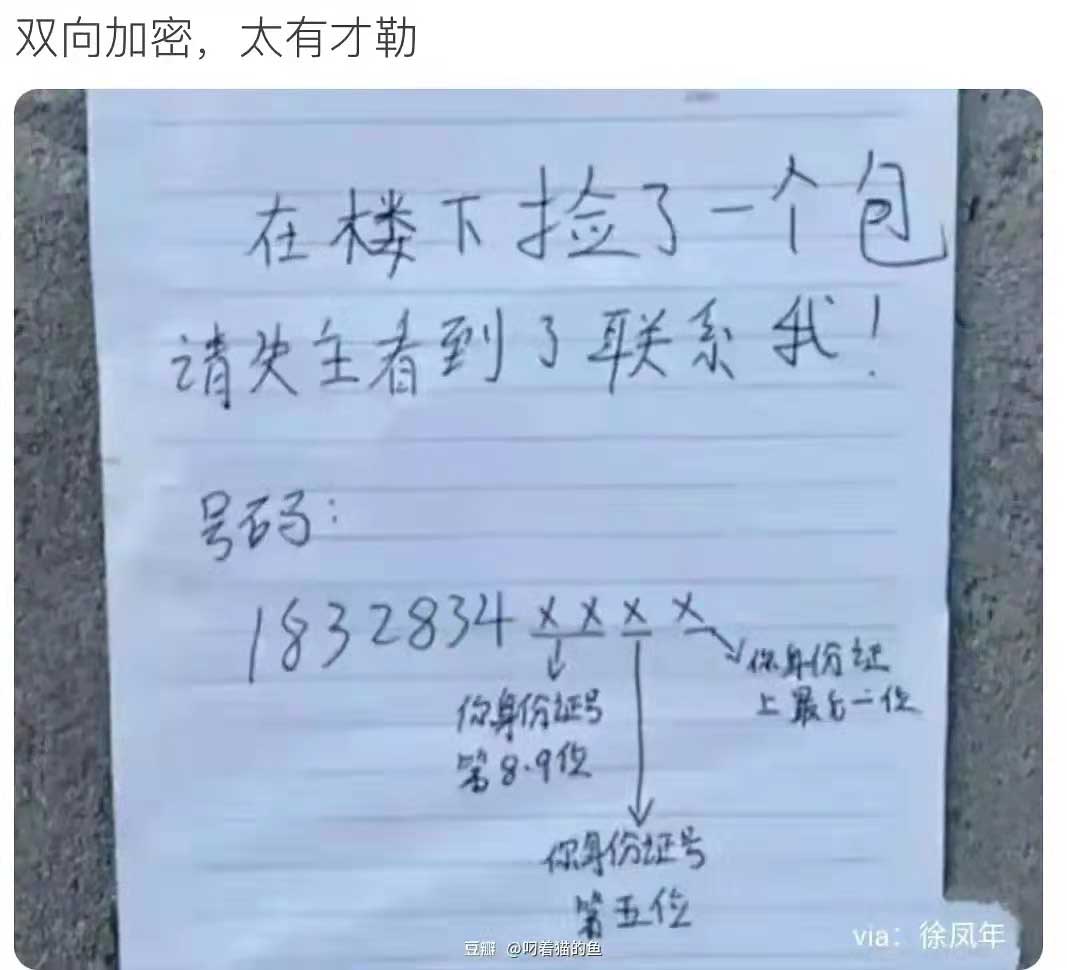 双向加密，太有才勒
在楼下捡了一个包
请失主看到了联系我！
号码：
1832834xxxx
你身份证
上最后一位
你身份证号
第8.9位
你身份证号
第五位
豆瓣 @呀着猫的鱼
via：徐凤年